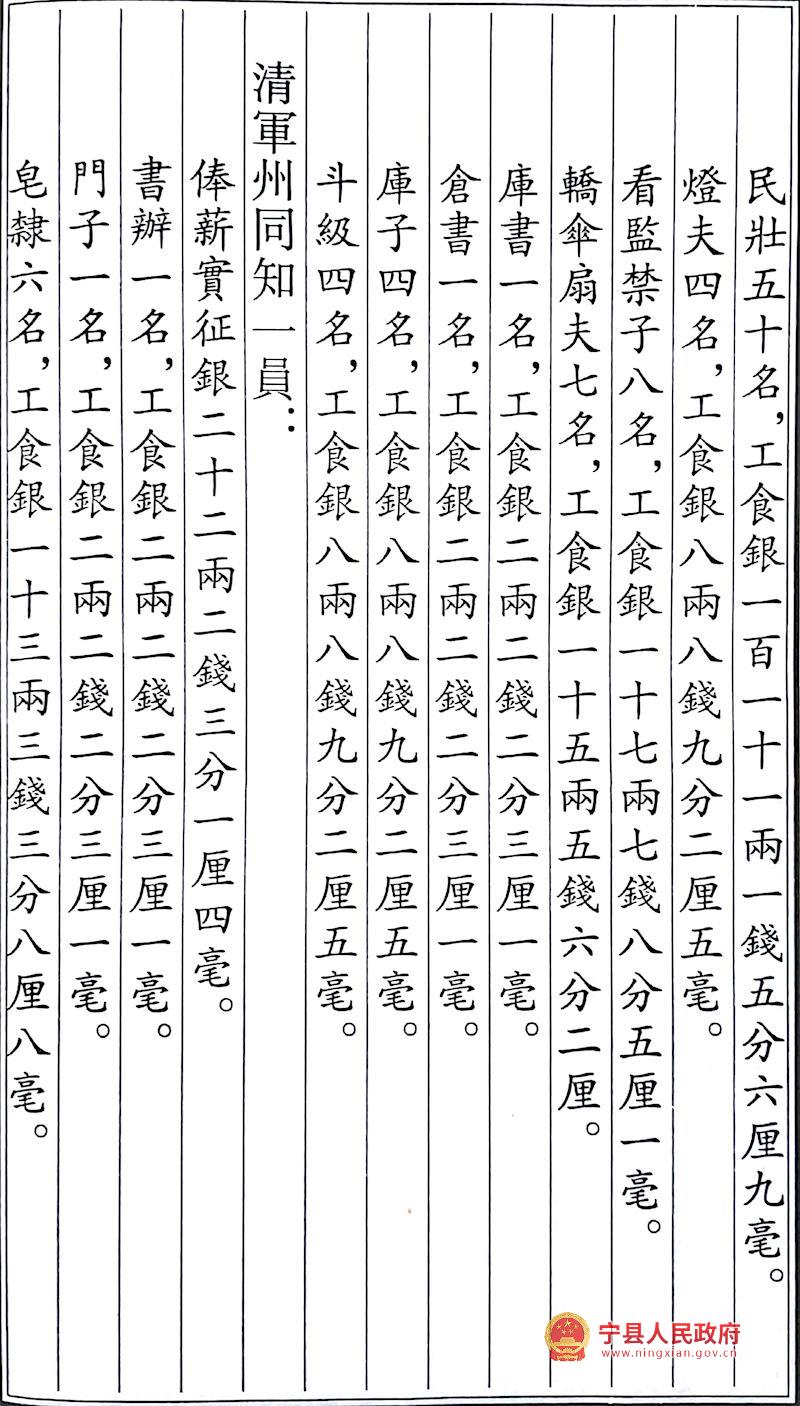 民壯五十名，工食銀一百一十一兩一錢五分六厘九毫。
燈夫四名，工食銀八兩八錢九分二厘五毫。
看監禁子八名，工食銀一十七兩七錢八分五厘一毫。
轎傘扇夫七名，工食銀一十五兩五錢六分二厘。
庫書一名，工食銀二兩二錢二分三厘一毫。
倉書一名，工食銀二兩二錢二分三厘一毫。
庫子四名，工食銀八兩八錢九分二厘五毫。
斗級四名，工食銀八兩八錢九分二厘五毫。
清軍州同知一員：
俸薪實征銀二十二兩二錢三分一厘四毫。
書辦一名，工食銀二兩二錢二分三厘一毫。
門子一名，工食銀二兩二錢二分三厘一毫。
皂隸六名，工食銀一十三兩三錢三分八厘八毫。
宁县人民政府
www.ningxian.gov.cn